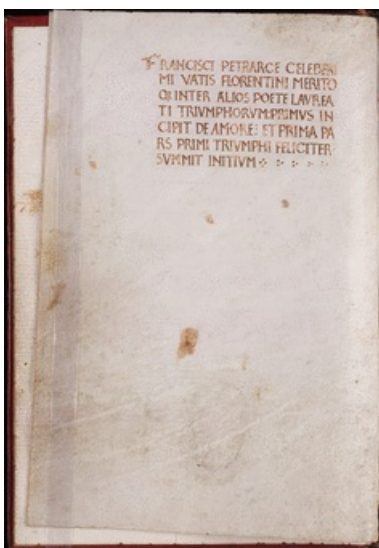 FRANCISCI PETRARCE CELEBERI
MI VATIS FLORENTINI MERITO
Q; INTER ALIOS POETE LAVREA
TI TRIVMPHORVM: PRIMVS IN
CIPIT DE AMORE: ET PRIMA PA
RS PRIMI TRIVMPHI FELICITER
SVMMIT INITIVM